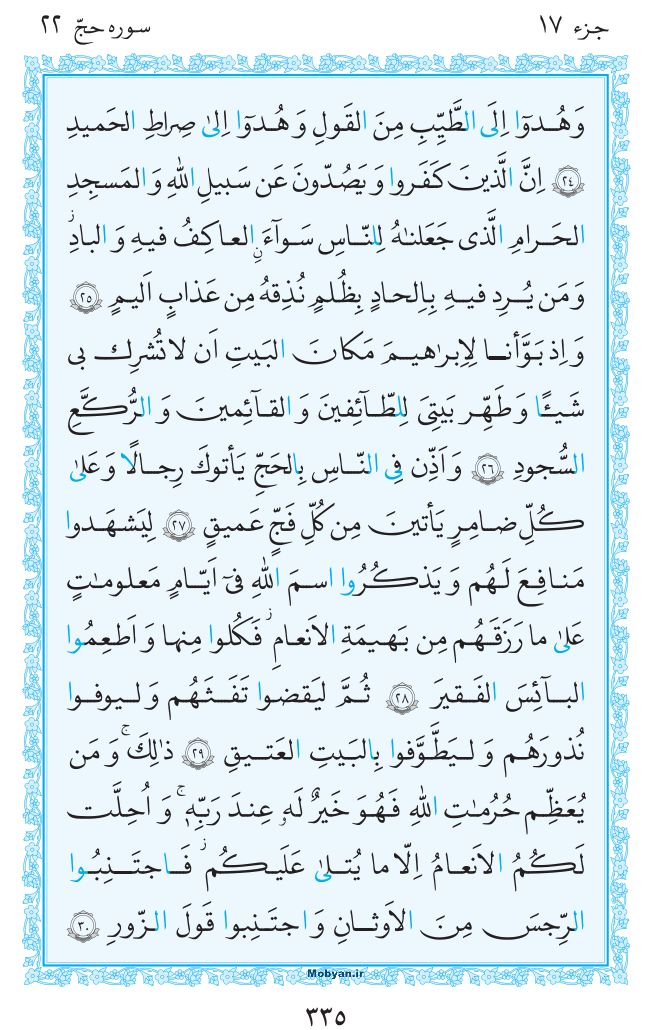 جزء ۱۷
سوره حجّ ۲۲
وَ هُـدوٓا اِلَى الطَّيِّبِ مِنَ القَولِ وَ هُـدوٓا اِلىٰ صِراطِ الحَميدِ
﴿٢٤﴾ اِنَّ الَّذينَ كَفَروا وَ يَصُدّونَ عَن سَبيلِ اللهِ وَ المَسجِدِ
الحَـرامِ الَّذى جَعَلنـٰهُ لِلنّـاسِ سَوآءًۨ العـاكِفُ فيهِ وَ البادِۚ
وَ مَن يُـرِد فيـهِ بِاِلحادٍ بِظُلمٍ نُذِقهُ مِن عَذابٍ اَليمٍ ﴿٢٥﴾
وَ اِذ بَوَّأنـا لِاِبرٰهيـمَ مَكانَ البَيتِ اَن لاتُشرِك بى
شَيـئًا وَ طَهِّـر بَيتِىَ لِلطّـآئِفينَ وَ القـآئِمينَ وَ الرُّكَّعِ
السُّجودِ ﴿٢٦﴾ وَ اَذِّن فِى النّـاسِ بِالحَجِّ يَأتوكَ رِجـالًا وَ عَلىٰ
كُـلِّ ضـامِـرٍ يَأتينَ مِن كُلِّ فَجٍّ عَميقٍ ﴿٢٧﴾ لِيَشهَـدوا
مَنـافِعَ لَـهُم وَ يَذكُـرُوا اسـمَ اللهِ فىٓ اَيّـامٍ مَعلومـٰتٍ
عَلىٰ ما رَزَقَـهُم مِن بَهيمَةِ الاَنعامِۖ فَكُلوا مِنها وَ اَطعِمُوا
البـآئِسَ الفَـقيرَ ﴿٢٨﴾ ثُـمَّ ليَقضـوا تَفَـثَهُم وَ لـيوفـوا
نُذورَهُـم وَ لـيَطَّوَّفوا بِالبَيتِ العَتيـقِ ﴿٢٩﴾ ذٰلِكَۚ وَ مَن
يُعَظِّـم حُرُمـٰتِ اللهِ فَهُوَ خَيرٌ لَهٗ عِنـدَ رَبِّهٖۚ وَ اُحِلَّت
لَكُـمُ الاَنعـامُ اِلّا ما يُتـلىٰ عَلَيـكُمۖ فَـاجتَـنِبُـوا
الـرِّجسَ مِـنَ الاَوثـانِ وَ اجتَـنِبوا قَولَ الـزّورِ ﴿٣٠﴾
Mobyan.ir
۳۳۵